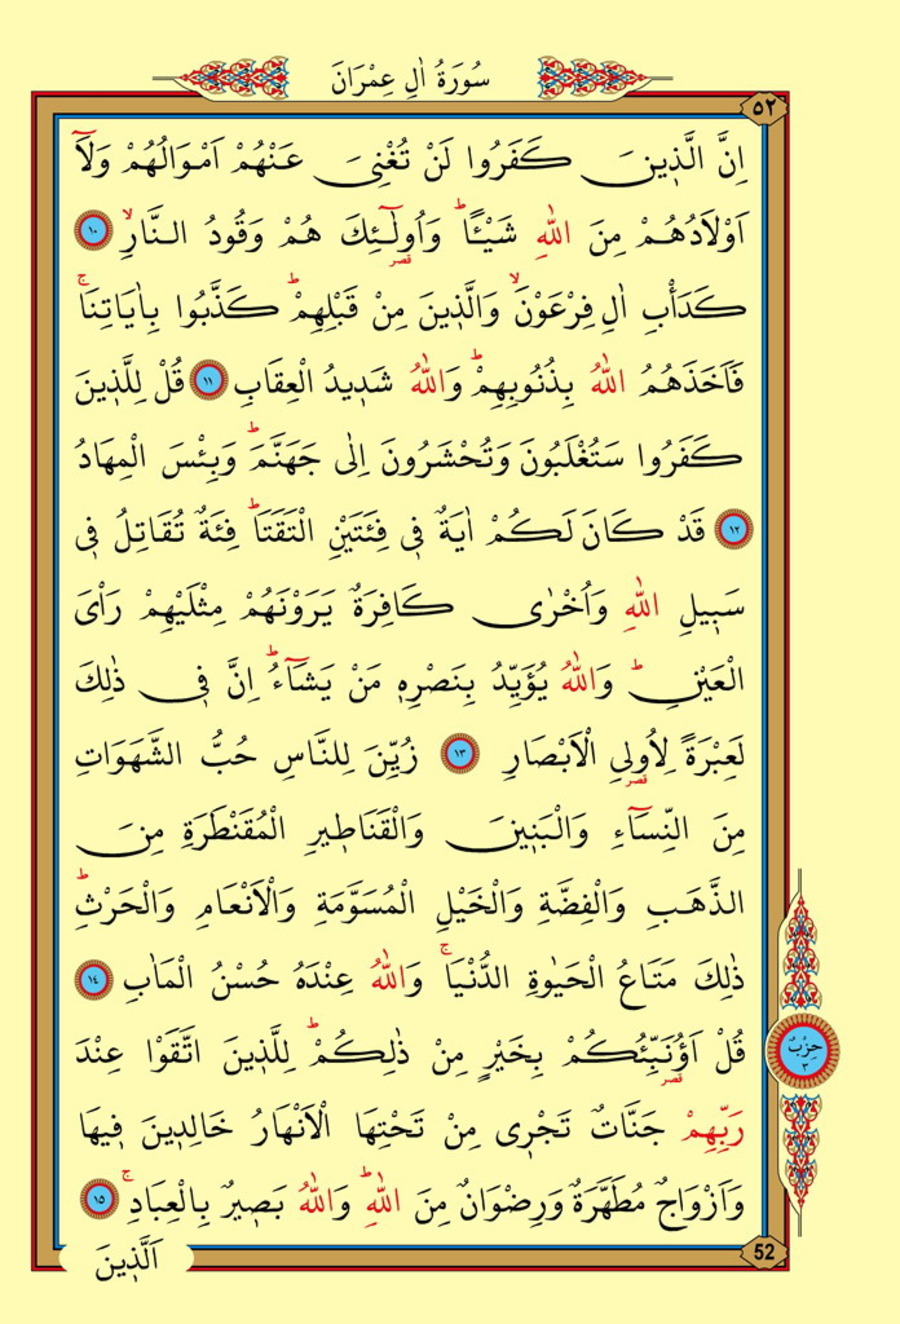 سُورَةُ اٰلِ عِمْرَانَ
٥٢
اِنَّ الَّذ۪ينَ كَفَرُوا لَنْ تُغْنِيَ عَنْهُمْ اَمْوَالُهُمْ وَلَٓا
اَوْلَادُهُمْ مِنَ اللّٰهِ شَيْـًٔاۜ وَاُو۬لٰٓئِكَ هُمْ وَقُودُ النَّارِۙ ١٠
كَدَأْبِ اٰلِ فِرْعَوْنَۙ وَالَّذ۪ينَ مِنْ قَبْلِهِمْۜ كَذَّبُوا بِاٰيَاتِنَاۚ
فَاَخَذَهُمُ اللّٰهُ بِذُنُوبِهِمْۜ وَاللّٰهُ شَد۪يدُ الْعِقَابِ ١١ قُلْ لِلَّذ۪ينَ
كَفَرُوا سَتُغْلَبُونَ وَتُحْشَرُونَ اِلٰى جَهَنَّمَۜ وَبِئْسَ الْمِهَادُ
١٢ قَدْ كَانَ لَكُمْ اٰيَةٌ ف۪ي فِئَتَيْنِ الْتَقَتَاۜ فِئَةٌ تُقَاتِلُ ف۪ي
سَب۪يلِ اللّٰهِ وَاُخْرٰى كَافِرَةٌ يَرَوْنَهُمْ مِثْلَيْهِمْ رَأْيَ
الْعَيْنِۜ وَاللّٰهُ يُؤَيِّدُ بِنَصْرِه۪ مَنْ يَشَٓاءُۜ اِنَّ ف۪ي ذٰلِكَ
لَعِبْرَةً لِاُو۬لِي الْاَبْصَارِ ١٣ زُيِّنَ لِلنَّاسِ حُبُّ الشَّهَوَاتِ
مِنَ النِّسَٓاءِ وَالْبَن۪ينَ وَالْقَنَاط۪يرِ الْمُقَنْطَرَةِ مِنَ
الذَّهَبِ وَالْفِضَّةِ وَالْخَيْلِ الْمُسَوَّمَةِ وَالْاَنْعَامِ وَالْحَرْثِۜ
ذٰلِكَ مَتَاعُ الْحَيٰوةِ الدُّنْيَاۚ وَاللّٰهُ عِنْدَهُ حُسْنُ الْمَاٰبِ ١٤
قُلْ اَؤُ۬نَبِّئُكُمْ بِخَيْرٍ مِنْ ذٰلِكُمْۜ لِلَّذ۪ينَ اتَّقَوْا عِنْدَ
حِزْبٌ
٣
رَبِّهِمْ جَنَّاتٌ تَجْر۪ي مِنْ تَحْتِهَا الْاَنْهَارُ خَالِد۪ينَ ف۪يهَا
وَاَزْوَاجٌ مُطَهَّرَةٌ وَرِضْوَانٌ مِنَ اللّٰهِۜ وَاللّٰهُ بَص۪يرٌ بِالْعِبَادِۚ ١٥
52
اَلَّذ۪ينَ